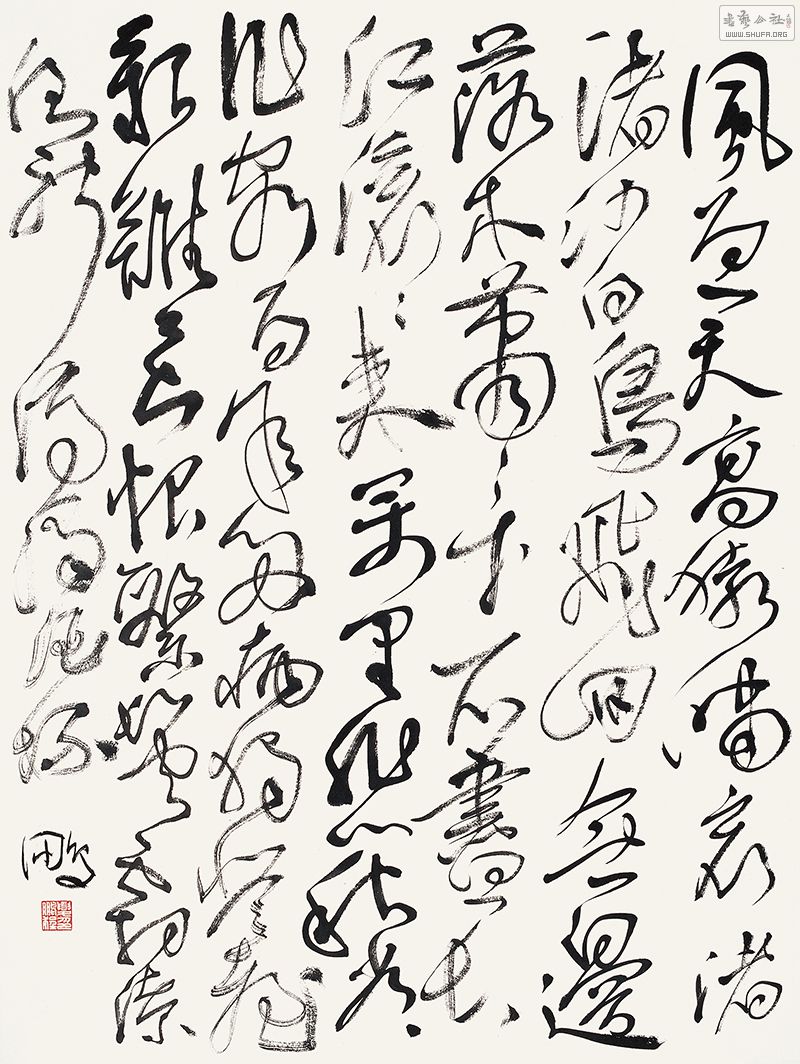 風急天高猿嘯哀渚
清沙白鳥飛迴無邊
落木蕭〻下不盡長
江滾〻來萬里悲秋常
作客百年多病獨登臺
艱難苦恨繁霜鬢潦
倒新停濁酒杯
鵬
WWW.SHUFA.ORG